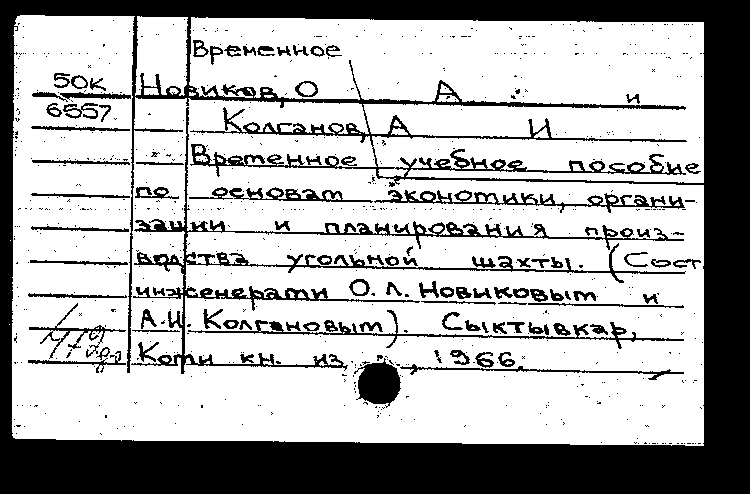 Временное
50К
6557
Новиков, О А и
Колганов, А И
Временное учебное пособие
по основам экономики, органи-
зации и планирования произ-
водства угольной шахты. (Сост.
инженерами О. Л. Новиковым и
А.И. Колгановым). Сыктывкар,
Коми кн. из , 1966.